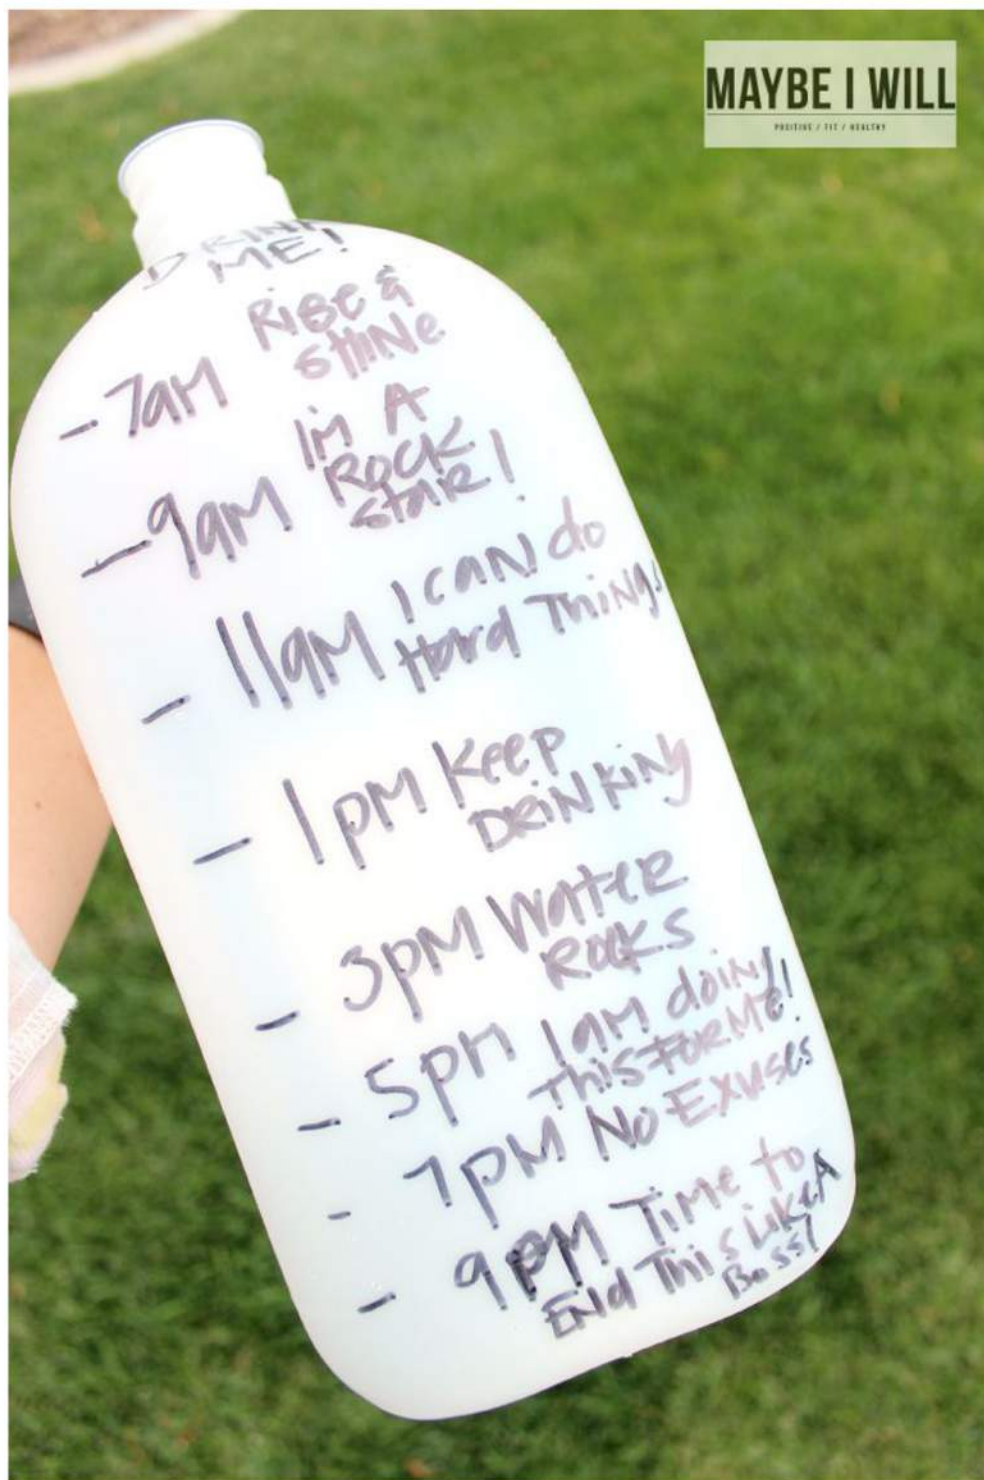 MAYBE I WILL
POSITIVE / FIT / HEALTHY
DRINK
ME!
Rise &
SHINe
- 7am
I'm A
ROCK
StaR!
- 9am
I CAN do
- 11am Hard Things
- 1pm Keep
DRiNking
- 3pm Water
ROCKS
- 5pm I am doing
This FOR Me!
- 7pm No Exuses
- 9pm Time to
End This Like A
Boss!